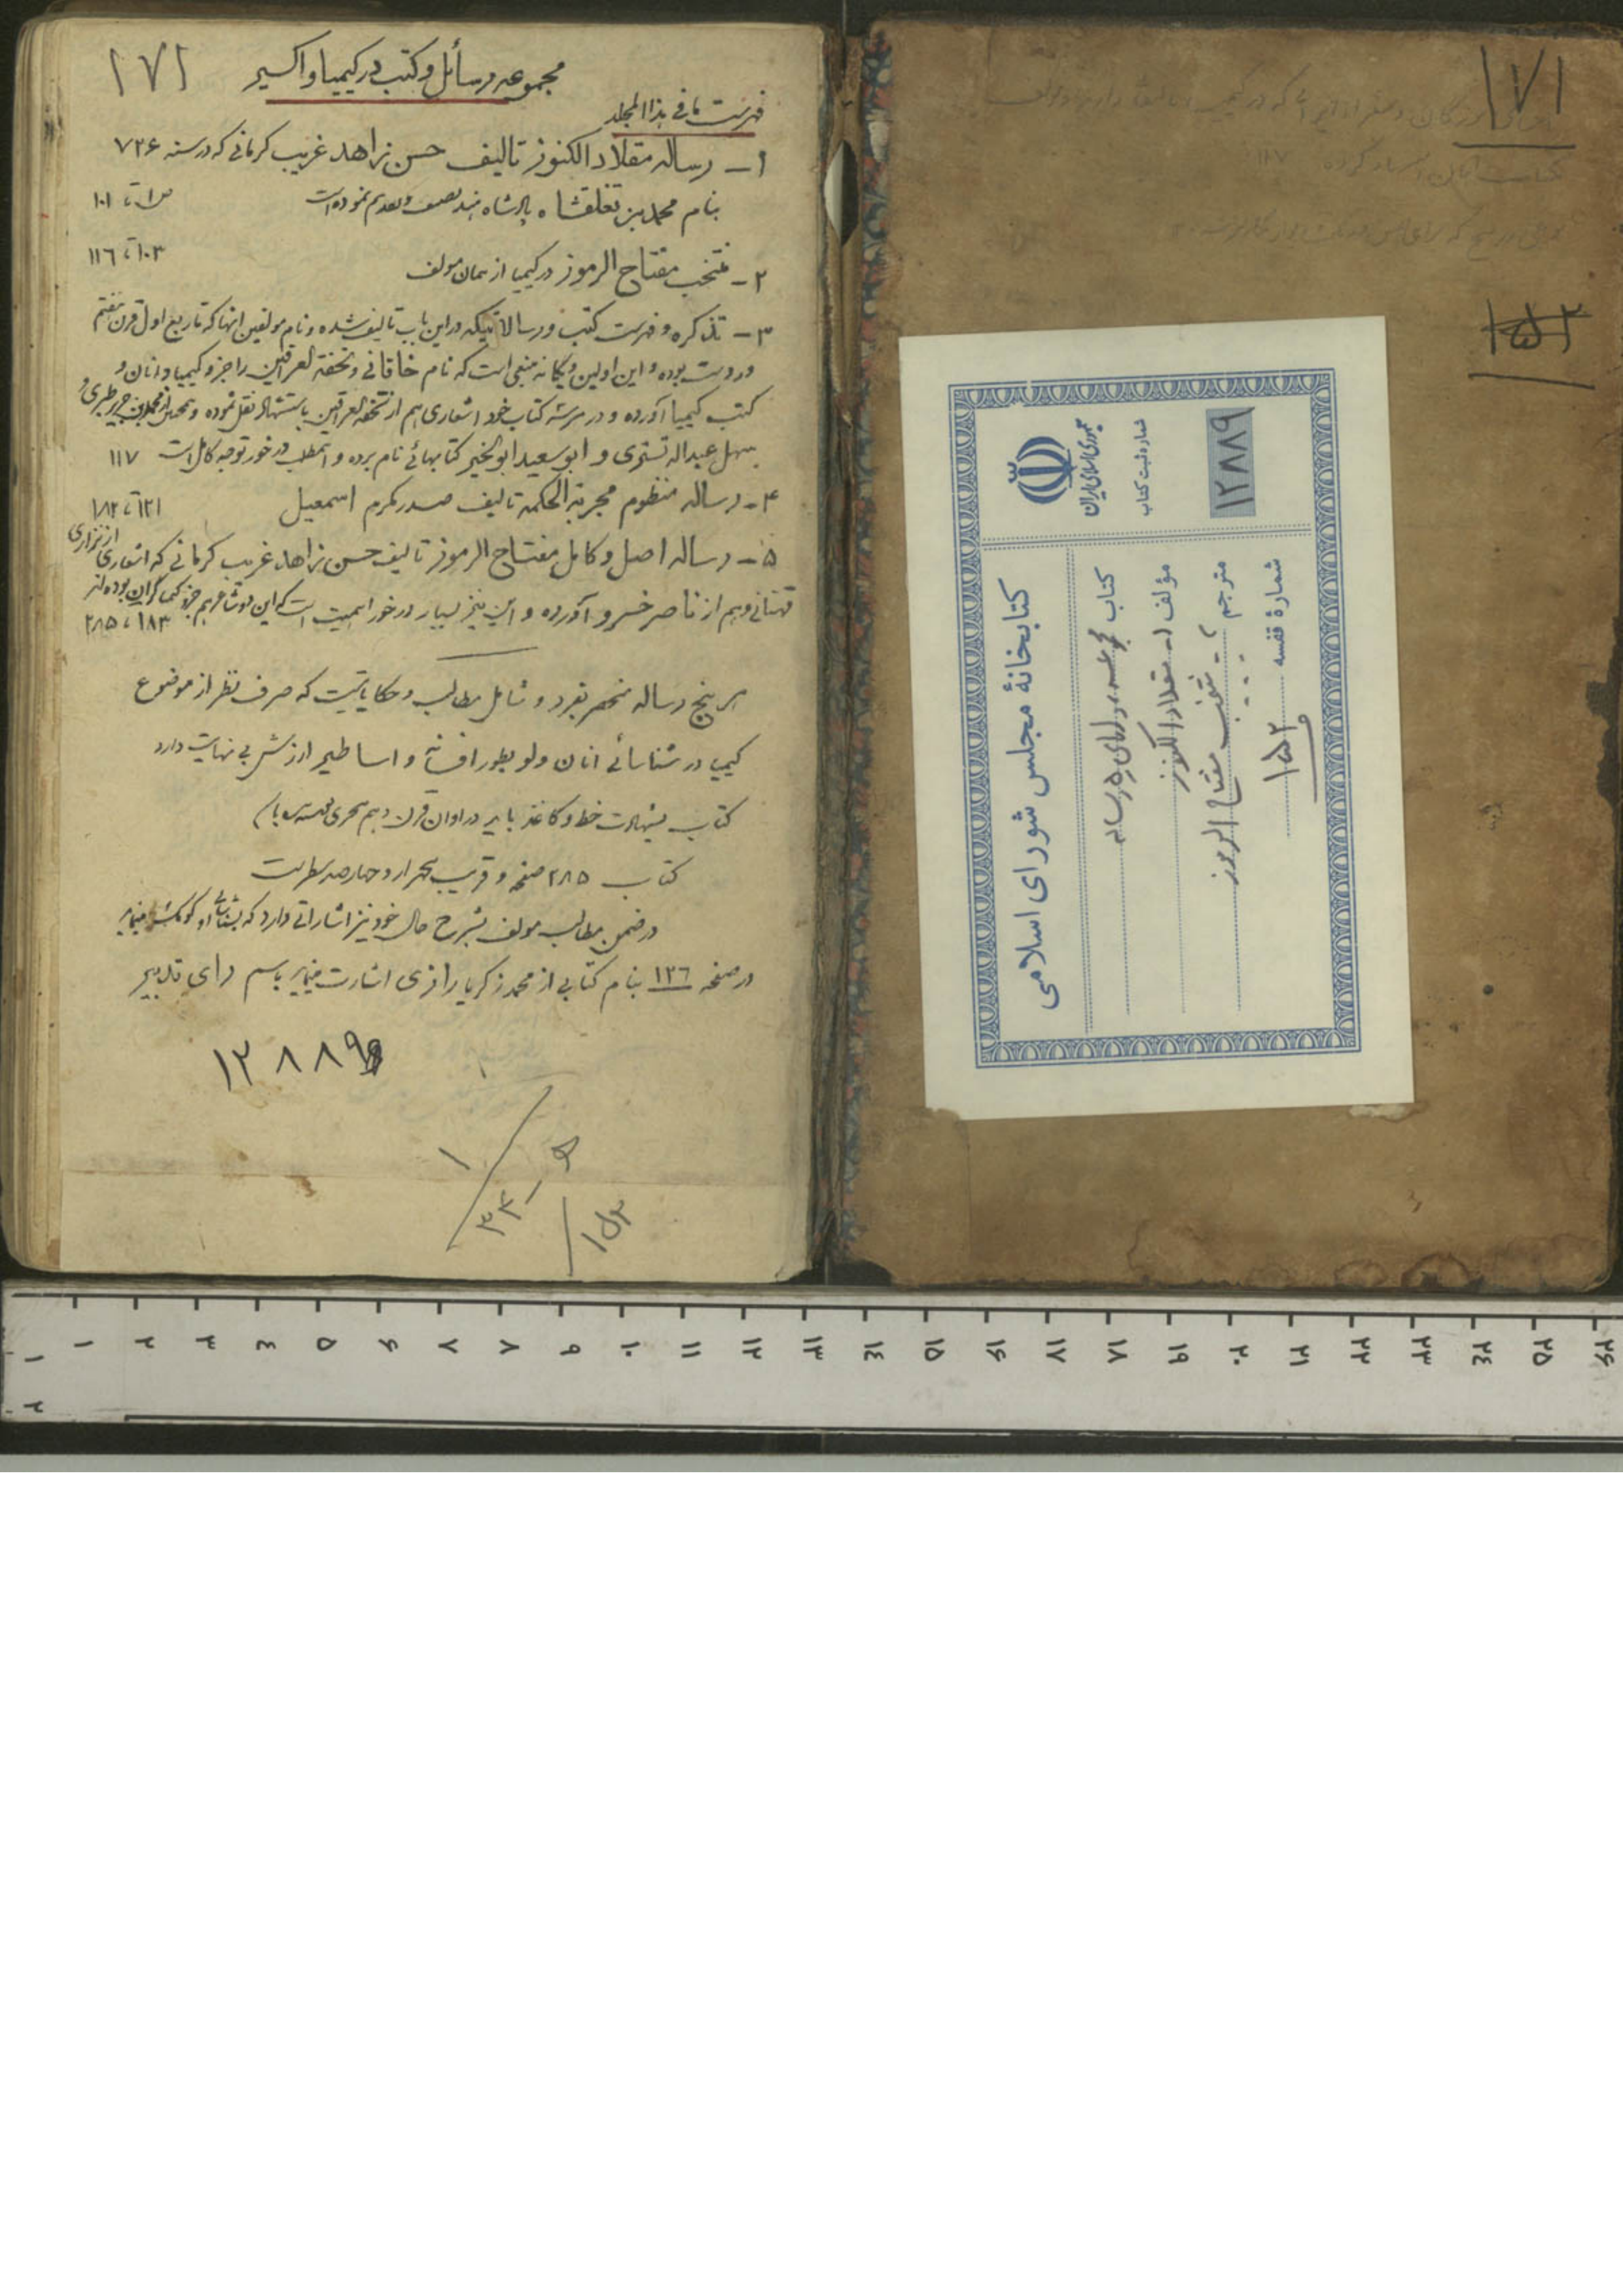 مجموعه رسائل و کتب در کیمیا و اکسیر
۱۷۱
فهرست مافی هذا المجلد
۱ - رساله مقلاد الکنوز تالیف حسن زاهد غریب کرمانی که در سنه ۷۳۶
بنام محمد بن تغلقشاه پادشاه هند تصنیف و تقدیم نموده است
ص ۱ تا ۱۰۱
۲ - منتخب مفتاح الرموز در کیمیا از همان مولف
۱۰۳ تا ۱۱٦
۳ - تذکره و فهرست کتب و رسالاتیکه در این باب تالیف شده و نام مولفین انها که تا ربع اول قرن هفتم
دردست بوده و این اولین و یگانه منبعی است که نام خاقانی و تحفة العراقین را جزو کیمیا دانان و
کتب کیمیا آورده و در کتاب خود اشعاری هم از تحفة العراقین باستشهاد نقل نموده و محمد بن جریر طبری و
سهل عبداله تستری و ابوسعید ابوالخیر کتابهائی نام برده و اینمطلب در خور توجه کامل است ۱۱۷
۴ - رساله منظوم مجربة الحکمه تالیف صدر مکرم اسمعیل
۱۲۱ تا ۱۸۲
۵ - رساله اصل و کامل مفتاح الرموز تالیف حسن زاهد غریب کرمانی که اشعاری از نزاری
قهستانی و هم از ناصر خسرو آورده و این نیز بسیار در خور اهمیت است که این دو شاعر هم جزو کیمیاگران بوده‌اند
۱۸۳ تا ۲۸۵
هر پنج رساله منحصر بفرد و شامل مطالب و حکایاتیست که صرف نظر از موضوع
کیمیا در شناسائی انان ولو بطور افسانه و اساطیر ارزش بی نهایت دارد
کتاب بشهادت خط و کاغذ باید در اوان قرن دهم هجری
کتاب ۲۸۵ صفحه و قریب چهارصد سطر است
در ضمن مطالب مولف بشرح حال خود نیز اشاراتی دارد که بشناسائی او کومک مینماید
در صفحه ۱۳٦ بنام کتابی از محمد زکریا رازی اشارت مینماید باسم رای تدبیر
۱۲۸۸۹
۱
۵
۳۳
۱۷۱
۱۵۲
کتابخانهٔ مجلس شورای اسلامی
جمهوری اسلامی ایران
شماره ثبت کتاب
۱۲۸۸۹
کتاب مجموعه، دارای ۵ رساله
مؤلف ۱- مقلاد الکنوز
مترجم ۲- منتخب مفتاح الرموز
شمارهٔ قفسه ۱۵۲
۱ ۲ ۳ ۴ ۵ ۶ ۷ ۸ ۹ ۱۰ ۱۱ ۱۲ ۱۳ ۱۴ ۱۵ ۱۶ ۱۷ ۱۸ ۱۹ ۲۰ ۲۱ ۲۲ ۲۳ ۲۴ ۲۵ ۲۶
۱
۲